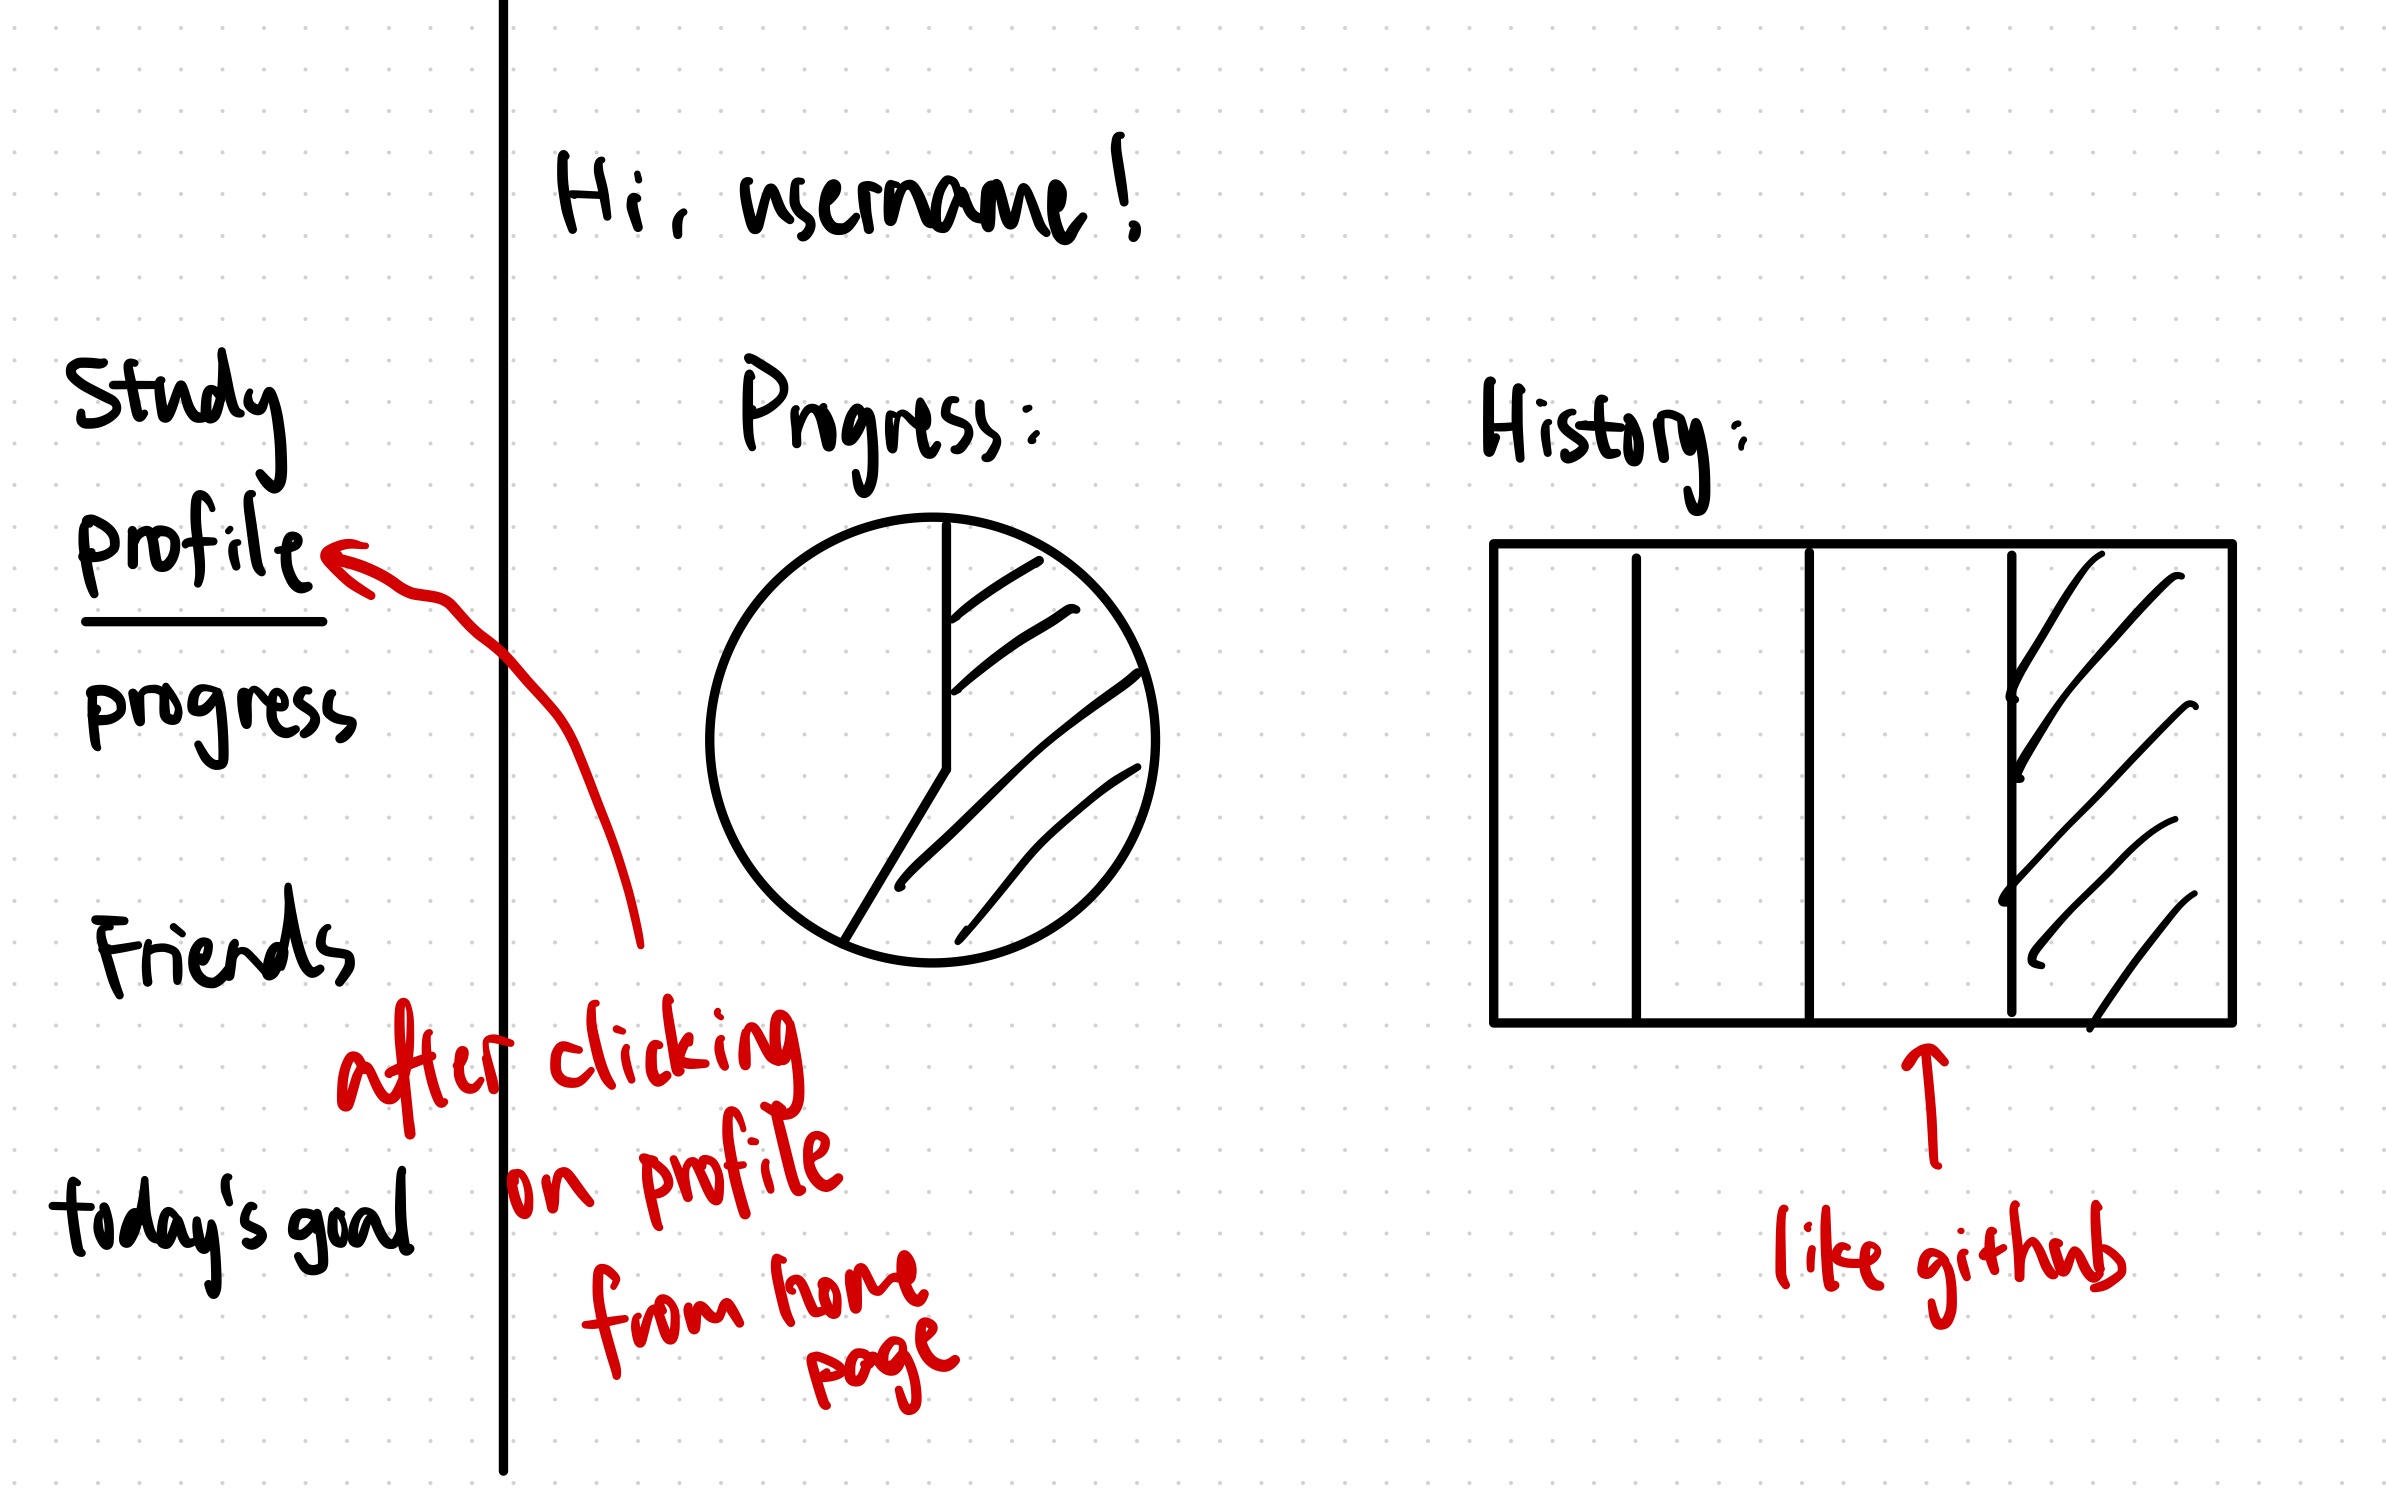 Hi, username!
Study
profile
progress
Friends
today's goal
Progress:
History:
after clicking
on profile
from home
page
like github